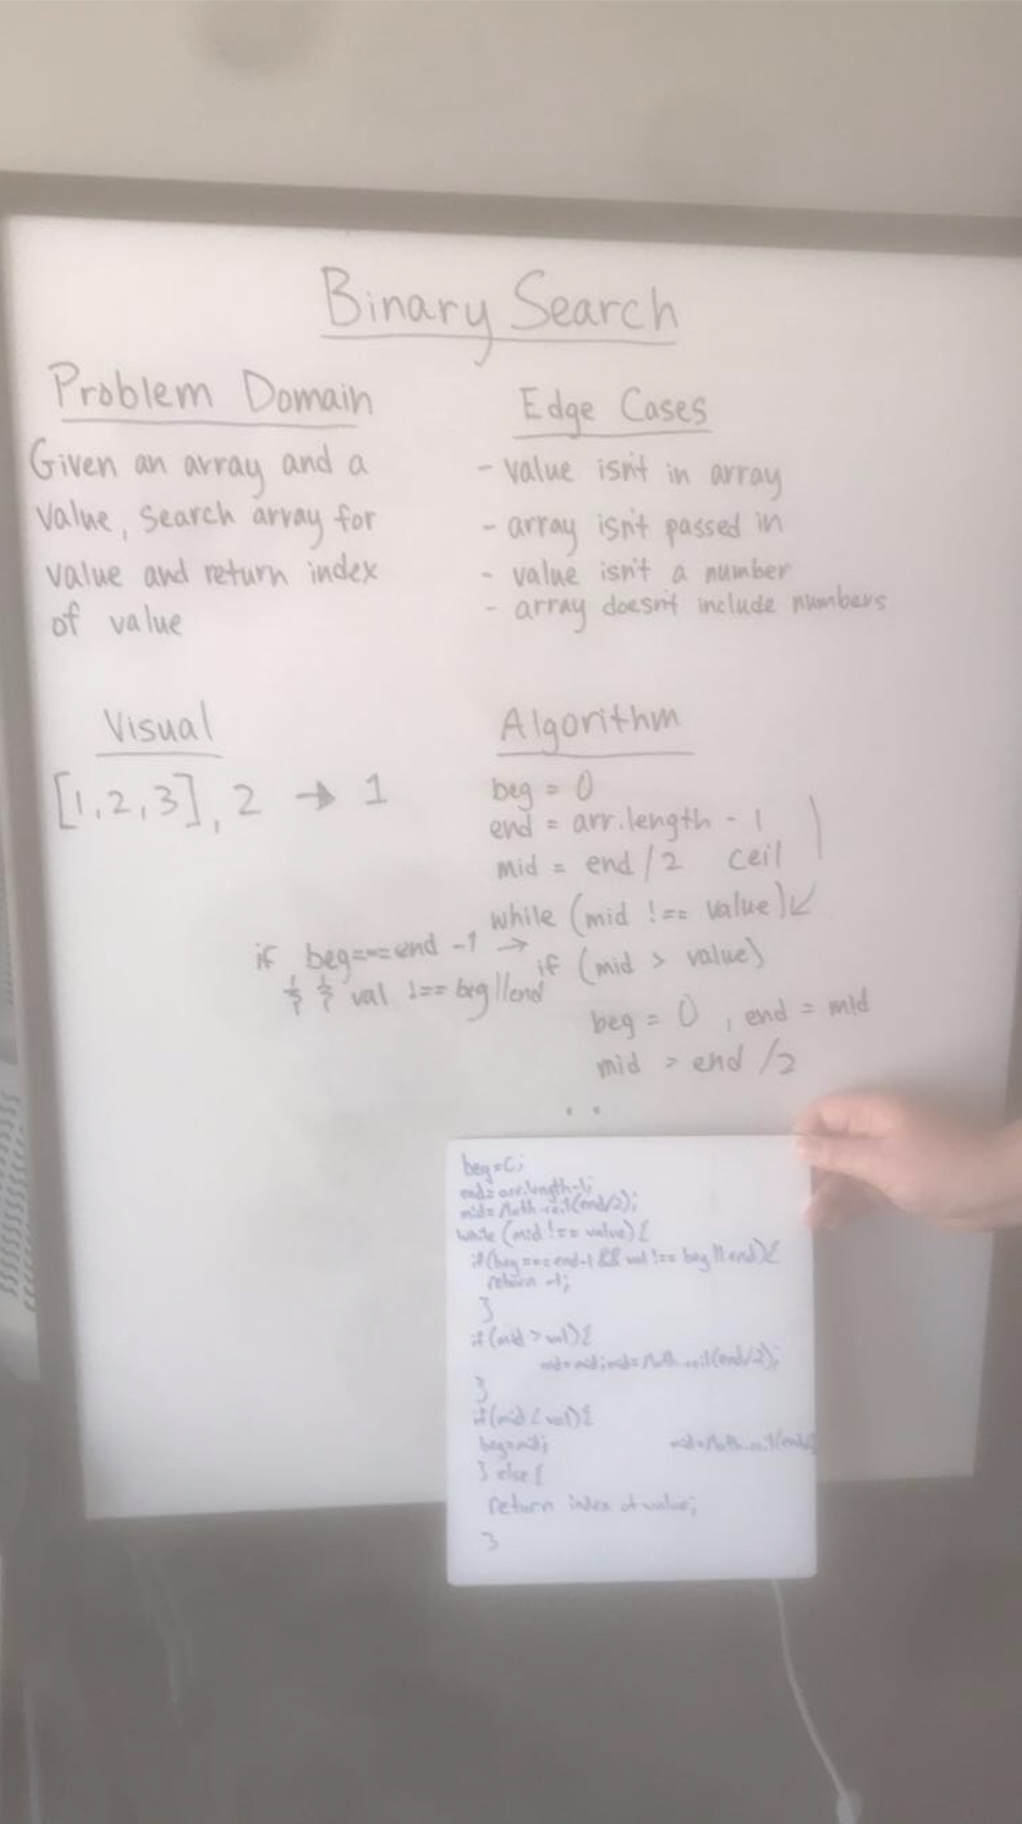 Binary Search
Problem Domain
Given an array and a
value, search array for
value and return index
of value
Edge Cases
- value isn't in array
- array isn't passed in
- value isn't a number
- array doesn't include numbers
Visual
[1,2,3], 2 → 1
Algorithm
beg = 0
end = arr.length - 1
mid = end/2 ceil
while (mid !== value)
if beg === end -1 →
&& val !== beg||end
if (mid > value)
beg = 0, end = mid
mid = end/2
..
end=arr.length-1;
mid=Math.ceil(end/2);
while (mid !== value){
if(beg===end-1 && val !== beg||end){
return -1;
}
if(mid > val){
end=mid;mid=Math.ceil(end/2);
}
if(mid < val){
beg=mid;
} else {
return index of value;
}